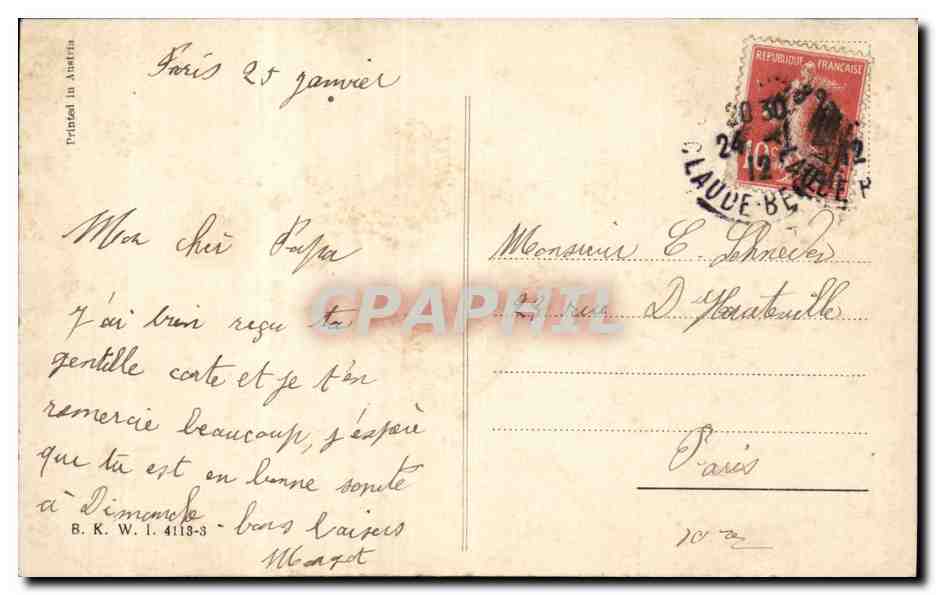 Printed in Austria
Paris 25 janvier
Mon cher Papa
J'ai bien reçu ta
gentille carte et je t'en
remercie beaucoup, j'espère
que tu est en bonne santé
à Dimanche - bons baisers
Margot
B. K. W. I. 4113-3
REPUBLIQUE FRANÇAISE
10
20 30
24
12
CLAUDE-BE
Monsieur E. Schnéder
23 rue D'Hauteville
Paris
CPAPHIL